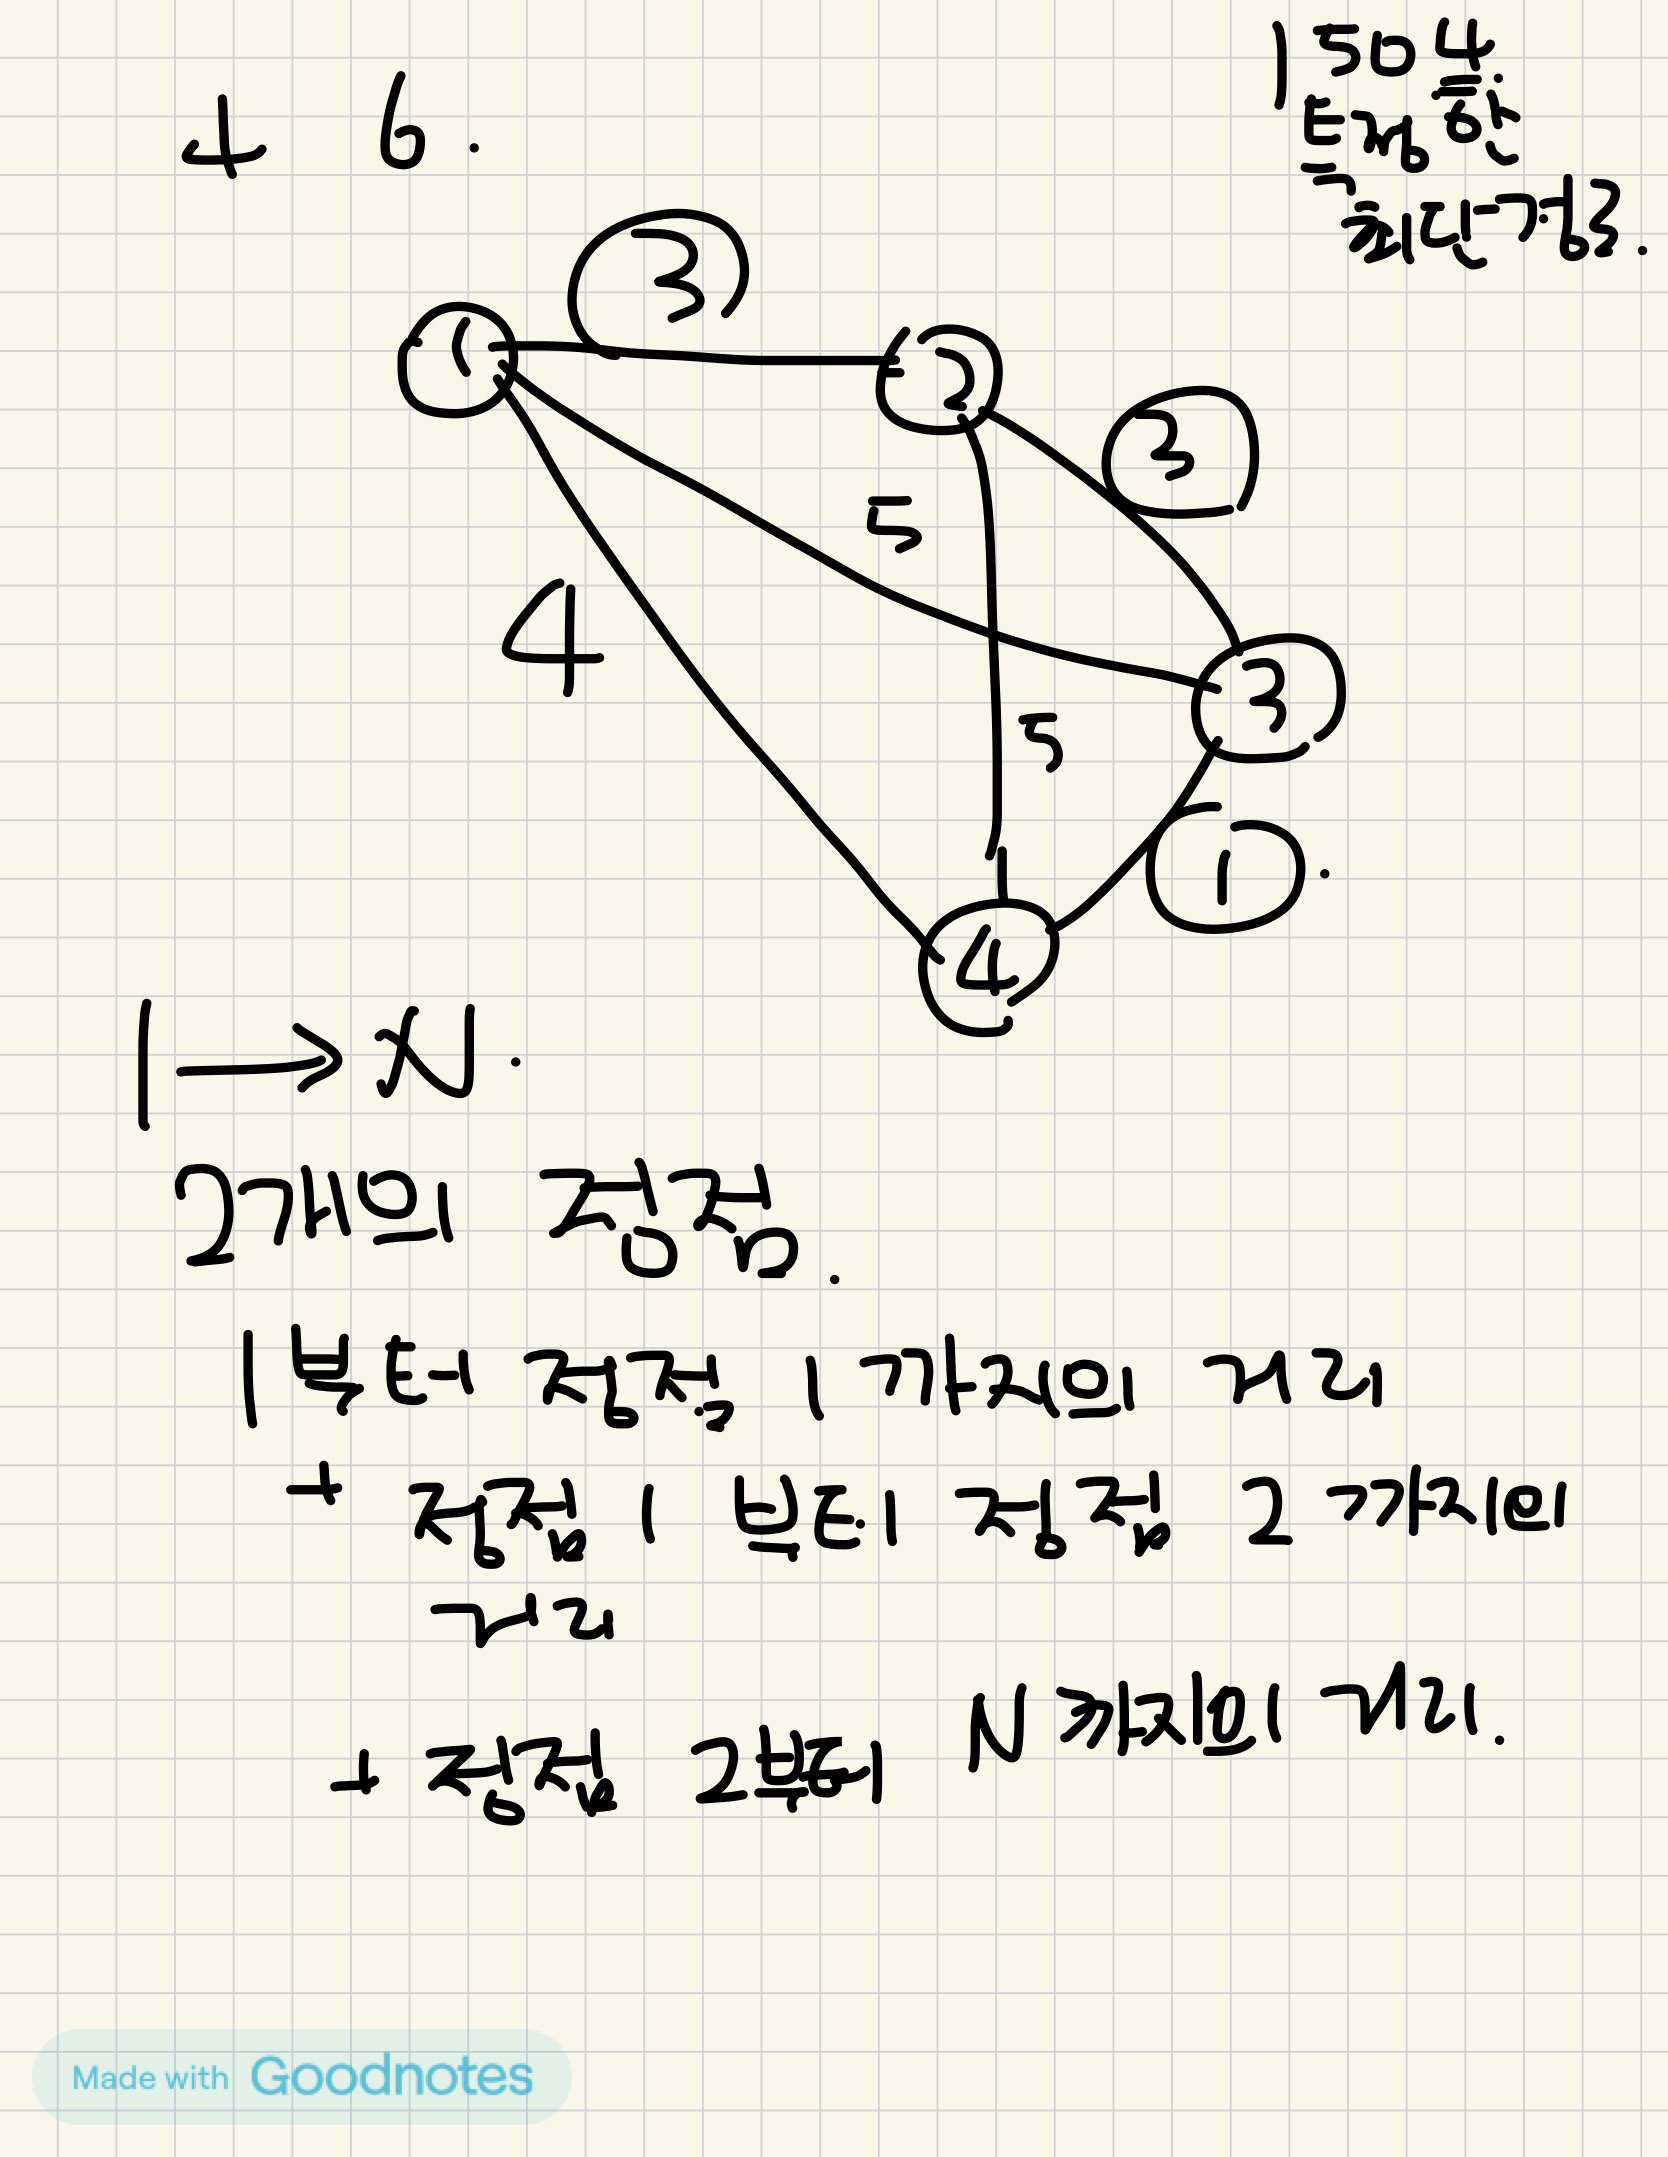 1504
특정한
최단경로.
4 6.
3
1
2
3
5
4
3
5
1.
4
1 → N.
2개의 정점.
1부터 정점 1까지의 거리
+ 정점 1 부터 정점 2 까지의
거리
+ 정점 2부터 N까지의 거리.
Made with Goodnotes